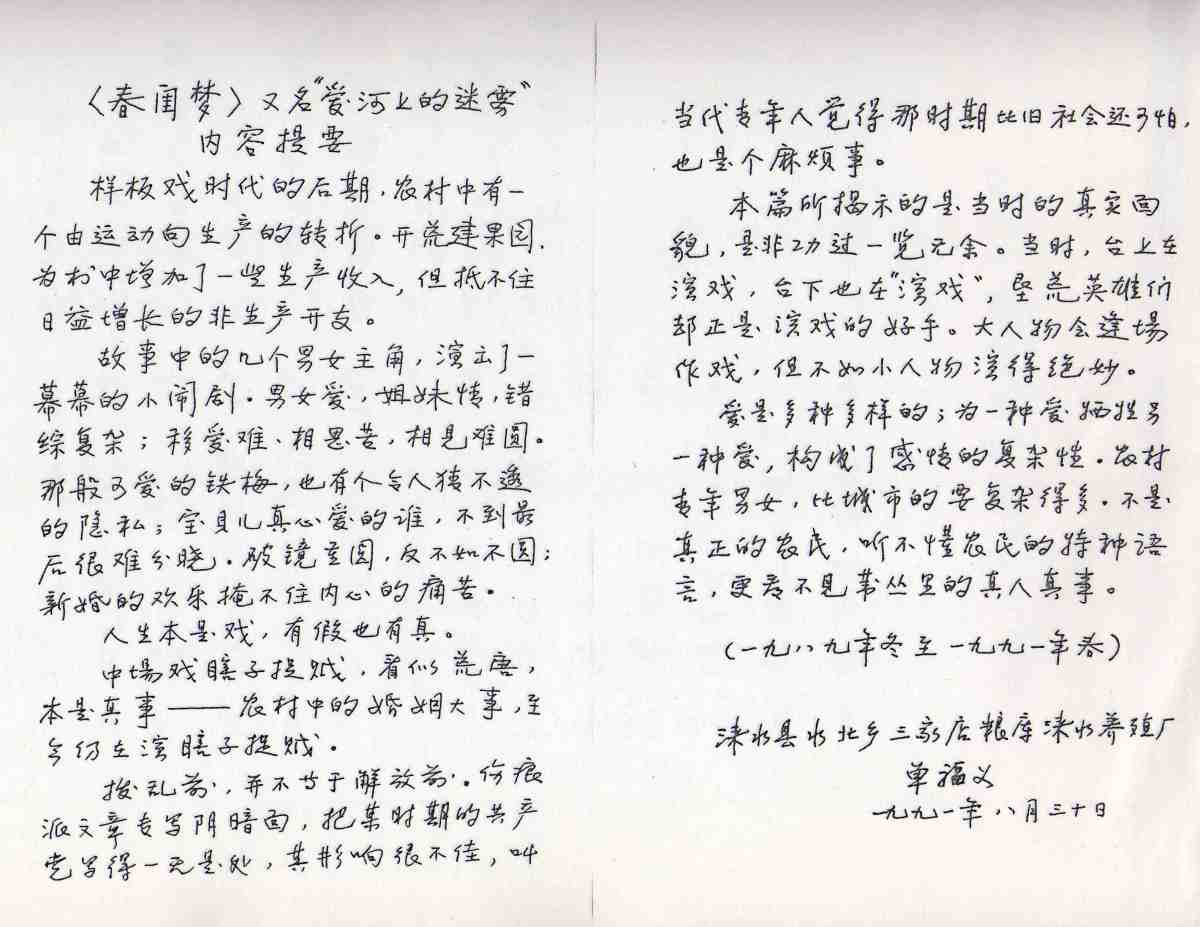 〈春闺梦〉又名“爱河上的迷雾”
内容提要
样板戏时代的后期，农村中有一
个由运动向生产的转折。开荒建果园，
为村中增加了一些生产收入，但抵不住
日益增长的非生产开支。
故事中的几个男女主角，演出了一
幕幕的小闹剧。男女爱，姐妹情，错
综复杂；移爱难、相思苦，相见难圆。
那般可爱的铁梅，也有个令人猜不透
的隐私；宝贝儿真心爱的谁，不到最
后很难分晓。破镜重圆，反不如不圆；
新婚的欢乐掩不住内心的痛苦。
人生本是戏，有假也有真。
中場戏瞎子捉贼，看似荒唐，
本是真事——农村中的婚姻大事，至
今仍在演瞎子捉贼。
拨乱前，并不等于解放前。伤痕
派文章专写阴暗面，把某时期的共产
党写得一无是处，其影响很不佳，叫
当代青年人觉得那时期比旧社会还可怕，
也是个麻烦事。
本篇所揭示的是当时的真实面
貌，是非功过一览无余。当时，台上在
演戏，台下也在“演戏”，垦荒英雄们
却正是演戏的好手。大人物会逢場
作戏，但不如小人物演得绝妙。
爱是多种多样的；为一种爱牺牲另
一种爱，构成了感情的复杂性。农村
青年男女，比城市的要复杂得多。不是
真正的农民，听不懂农民的特种语
言，更看不见苇丛里的真人真事。
（一九八九年冬至一九九一年春）
涞水县水北乡三家店粮库涞水养殖厂
单福义
一九九一年八月三十日